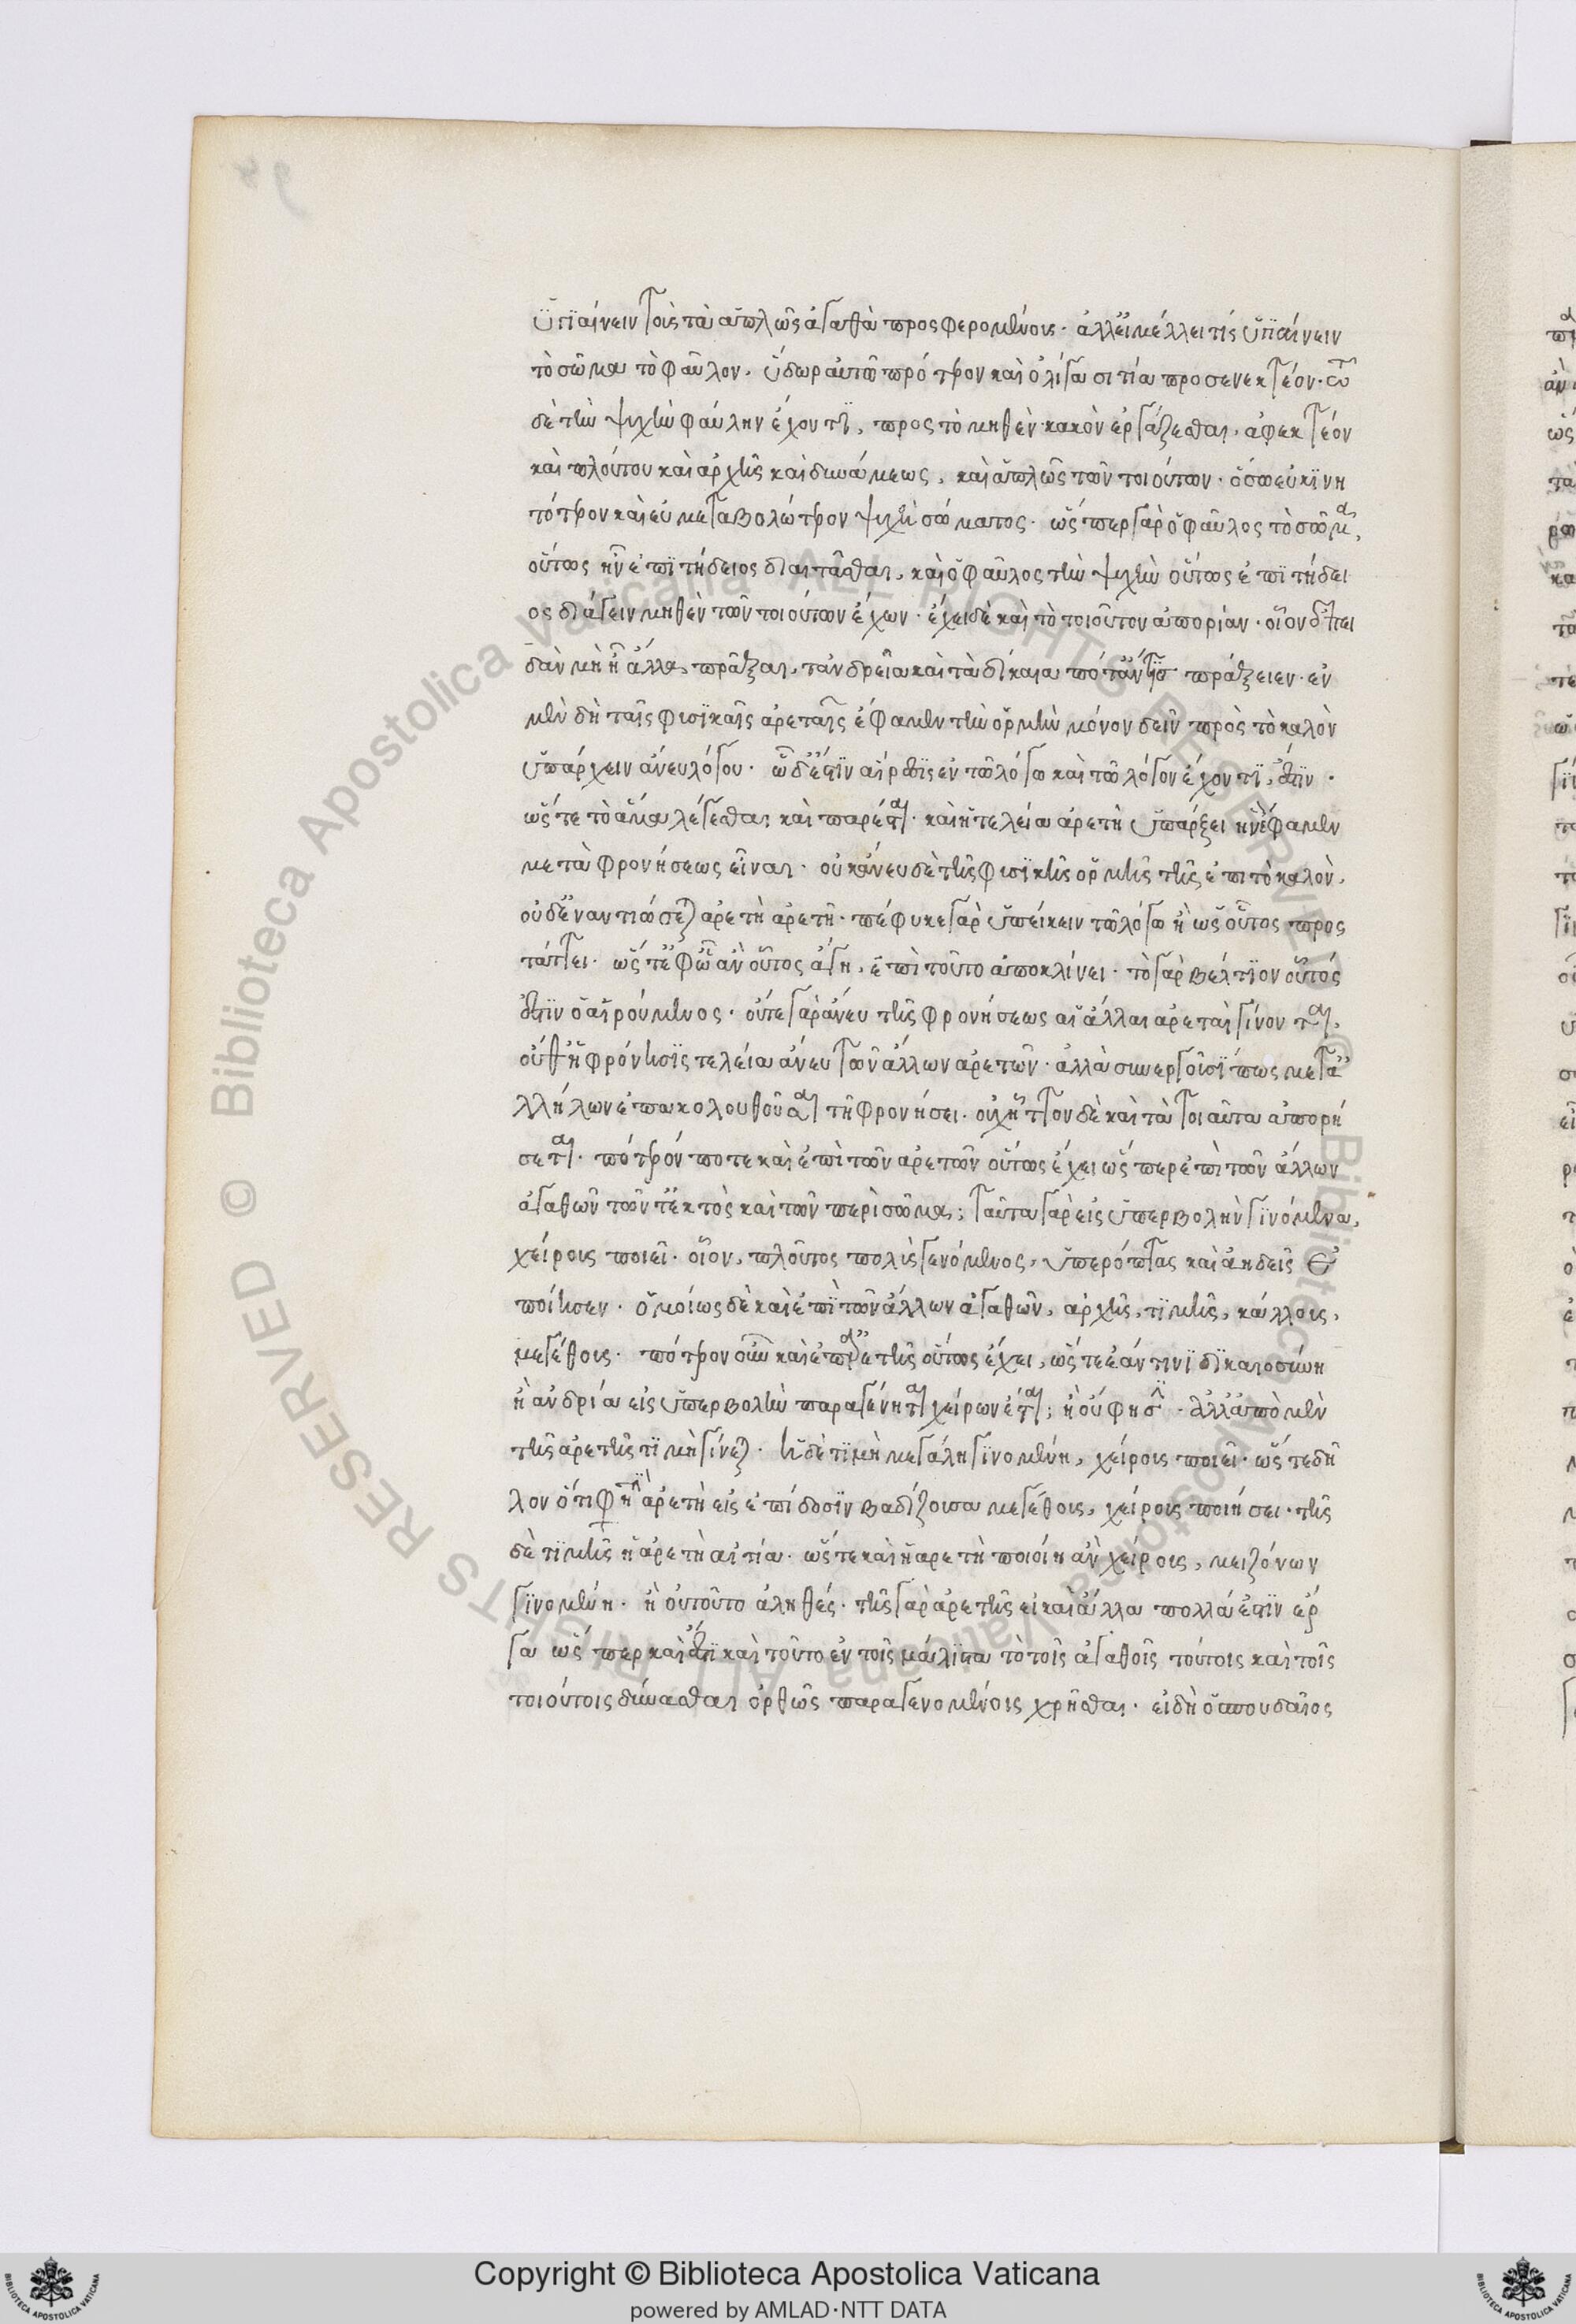 ὑγιαίνειν τοῖς τὰ ἁπλῶς ἀγαθὰ προσφερομένοις· ἀλλ' εἰ μέλλει τίς ὑγιαίνειν
τὸ σῶμα τὸ φαῦλον, ὕδωρ αὐτῶ πρότερον καὶ ὀλίγα σιτία προσενεκτέον· τῶ
δὲ τὴν ψυχὴν φαύλην ἔχοντι, πρὸς τὸ μηθὲν κακὸν ἐργάζεσθαι, ἀφεκτέον
καὶ πλούτου καὶ ἀρχῆς καὶ δυνάμεως, καὶ ἁπλῶς τῶν τοιούτων· ὅσω εὐκινη
τότερον καὶ εὐμεταβολώτερον ψυχὴ σώματος· ὥσπερ γὰρ ὁ φαῦλος τὸ σῶμα,
οὕτως ἦν ἐπιτήδειος διαιτᾶσθαι, καὶ ὁ φαῦλος τὴν ψυχὴν οὕτως ἐπιτήδει
ος διάγειν μηθὲν τῶν τοιούτων ἔχων· ἔχει δὲ καὶ τὸ τοιοῦτον ἀπορίαν· οἷον ἐπει
δὰν μὴ ἦ ἅμα πρᾶξαι, τἀνδρεῖα καὶ τὰ δίκαια πότερ' ἄν τις πράξειεν· ἐν
μὲν δὴ ταῖς φυσικαῖς ἀρεταῖς ἔφαμεν τὴν ὁρμὴν μόνον δεῖν πρὸς τὸ καλὸν
ὑπάρχειν ἄνευ λόγου· ὧ δ' ἔστιν αἵρεσις ἐν τῶ λόγω καὶ τῶ λόγον ἔχοντι, ἐστιν·
ὥστε τὸ ἅμα λέγεσθαι καὶ παρέσται· καὶ ἡ τελεία ἀρετὴ ὑπάρξει ἣν ἔφαμεν
μετὰ φρονήσεως εἶναι· οὐκ ἄνευ δὲ τῆς φυσικῆς ὁρμῆς τῆς ἐπὶ τὸ καλὸν,
οὐδ' ἐναντιώσεται ἀρετὴ ἀρετῆ· πέφυκε γὰρ ὑπείκειν τῶ λόγω ἢ ὡς οὗτος προσ
τάττει· ὥστ' ἐφ' ὧ ἂν οὗτος ἄγη, ἐπὶ τοῦτο ἀποκλίνει· τὸ γὰρ βέλτιον οὗτός
ἐστιν ὁ αἱρούμενος· οὔτε γὰρ ἄνευ τῆς φρονήσεως αἱ ἄλλαι ἀρεταὶ γίνονται,
οὔθ' ἡ φρόνησις τελεία ἄνευ τῶν ἄλλων ἀρετῶν· ἀλλὰ συνεργοῦσί πως μετ' ἀ
λλήλων ἐπακολουθοῦσαι τῆ φρονήσει· οὐχ ἧττον δὲ καὶ τὰ τοιαῦτα ἀπορή
σεται· πότερόν ποτε καὶ ἐπὶ τῶν ἀρετῶν οὕτως ἔχει ὥσπερ ἐπὶ τῶν ἄλλων
ἀγαθῶν τῶν τ' ἐκτὸς καὶ τῶν περὶ σῶμα; ταῦτα γὰρ εἰς ὑπερβολὴν γινόμενα,
χείρους ποιεῖ· οἷον, πλοῦτος πολὺς γενόμενος, ὑπερόπτας καὶ ἀηδεῖς ἐ
ποίησεν· ὁμοίως δὲ καὶ ἐπὶ τῶν ἄλλων ἀγαθῶν, ἀρχῆς, τιμῆς, κάλλους,
μεγέθους· πότερον οὖν καὶ ἐπ' ἀρετῆς οὕτως ἔχει, ὥστε ἐάν τινι δικαιοσύνη
ἢ ἀνδρία εἰς ὑπερβολὴν παραγένηται χείρων ἔσται; ἢ οὔ φησι· ἀλλ' ἀπὸ μὲν
τῆς ἀρετῆς τιμὴ γίνεται· ἡ δὲ τιμὴ μεγάλη γινομένη, χείρους ποιεῖ· ὥστε δῆ
λον ὅτι φησὶν ἡ ἀρετὴ εἰς ἐπίδοσιν βαδίζουσα μεγέθους, χείρους ποιήσει· τῆς
δὲ τιμῆς ἡ ἀρετὴ αἰτία· ὥστε καὶ ἡ ἀρετὴ ποιοίη ἂν χείρους, μειζόνων
γινομένη· ἢ οὐ τοῦτο ἀληθές· τῆς γὰρ ἀρετῆς εἰ καὶ ἄλλα πολλά ἐστιν ἔρ
γα ὥσπερ καὶ ἔστι καὶ τοῦτο ἐν τοῖς μάλιστα τὸ τοῖς ἀγαθοῖς τούτοις καὶ τοῖς
τοιούτοις δύνασθαι ὀρθῶς παραγενομένοις χρῆσθαι· εἰ δὴ ὁ σπουδαῖος
Copyright © Biblioteca Apostolica Vaticana
powered by AMLAD·NTT DATA